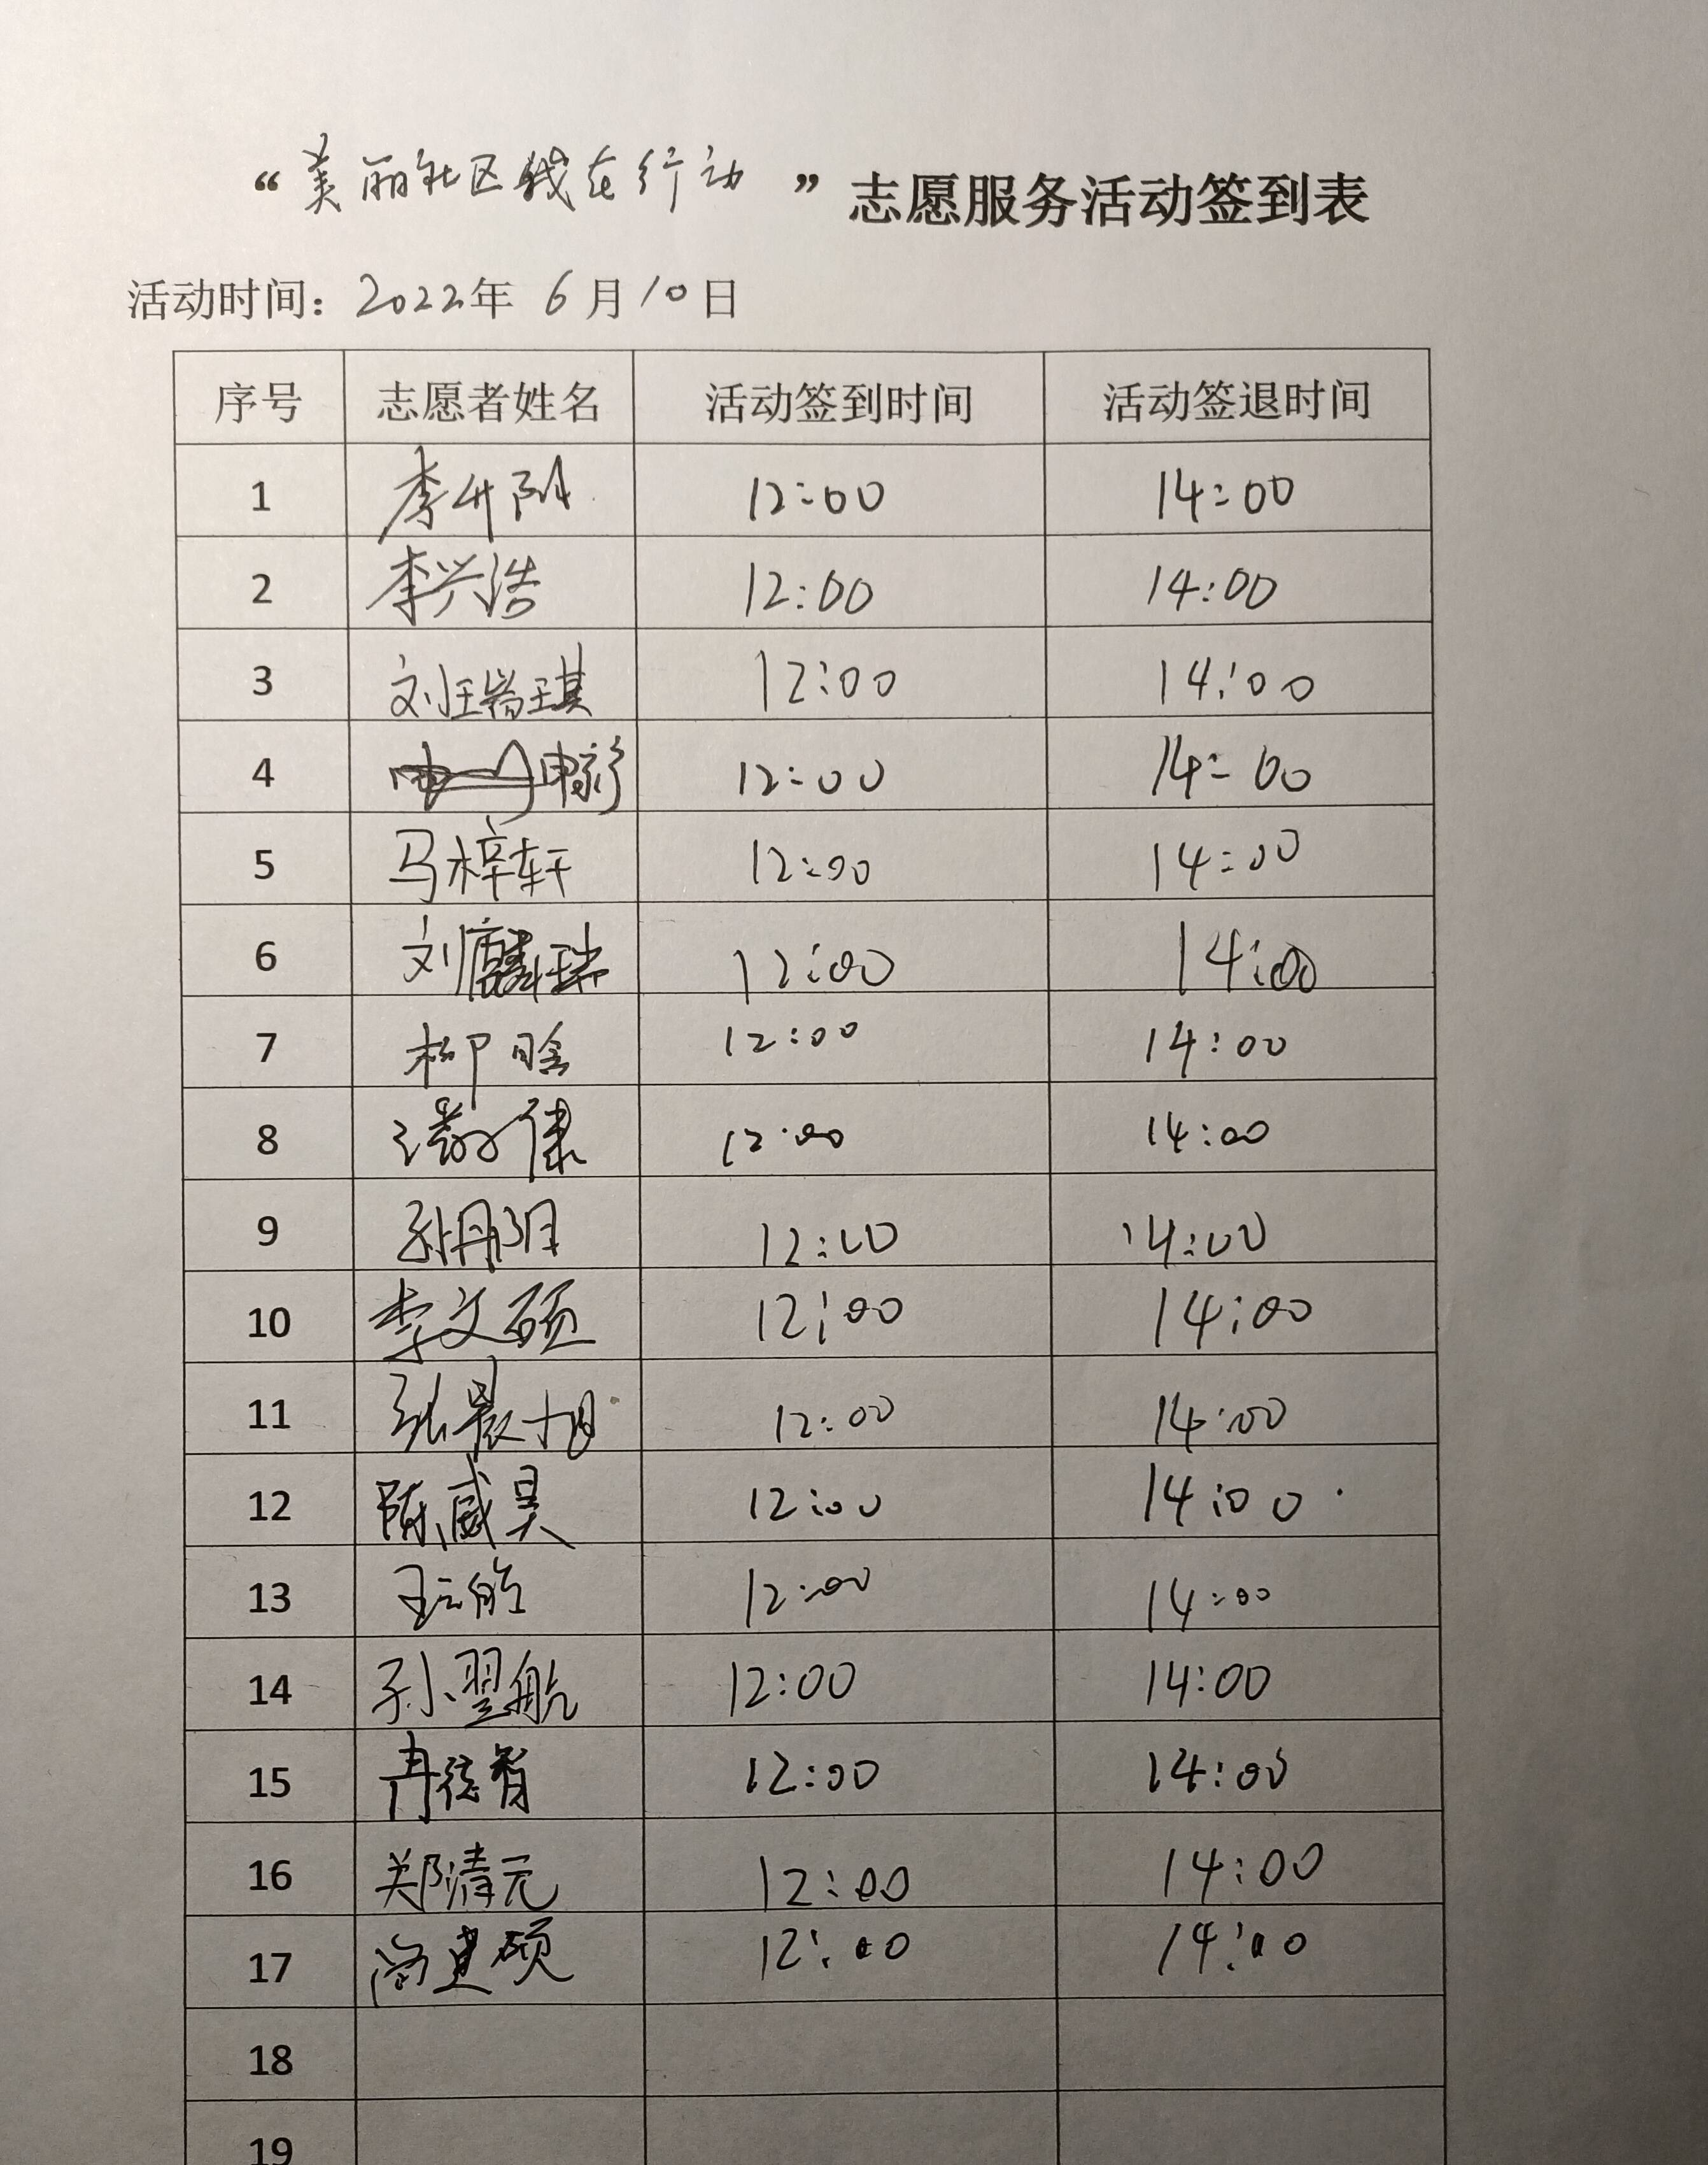 “美丽社区我在行动”志愿服务活动签到表
活动时间：2022年 6月10日
序号 志愿者姓名 活动签到时间 活动签退时间
1 李 12:00 14:00
2 李兴浩 12:00 14:00
3 刘珏瑞琪 12:00 14:00
4 12:00 14:00
5 马梓轩 12:00 14:00
6 刘 12:00 14:00
7 柳晗 12:00 14:00
8 12:00 14:00
9 孙丹阳 12:00 14:00
10 李文硕 12:00 14:00
11 张晨旭 12:00 14:00
12 陈威昊 12:00 14:00
13 12:00 14:00
14 孙翌航 12:00 14:00
15 冉德智 12:00 14:00
16 郑清元 12:00 14:00
17 尚建硕 12:00 14:00
18
19